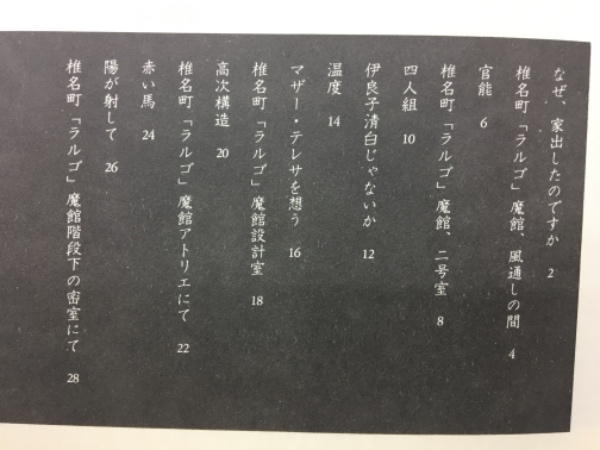 なぜ、家出したのですか 2
椎名町「ラルゴ」魔館、風通しの間 4
官能 6
椎名町「ラルゴ」魔館、二号室 8
四人組 10
伊良子清白じゃないか 12
温度 14
マザー・テレサを想う 16
椎名町「ラルゴ」魔館設計室 18
高次構造 20
椎名町「ラルゴ」魔館アトリエにて 22
赤い馬 24
陽が射して 26
椎名町「ラルゴ」魔館階段下の密室にて 28